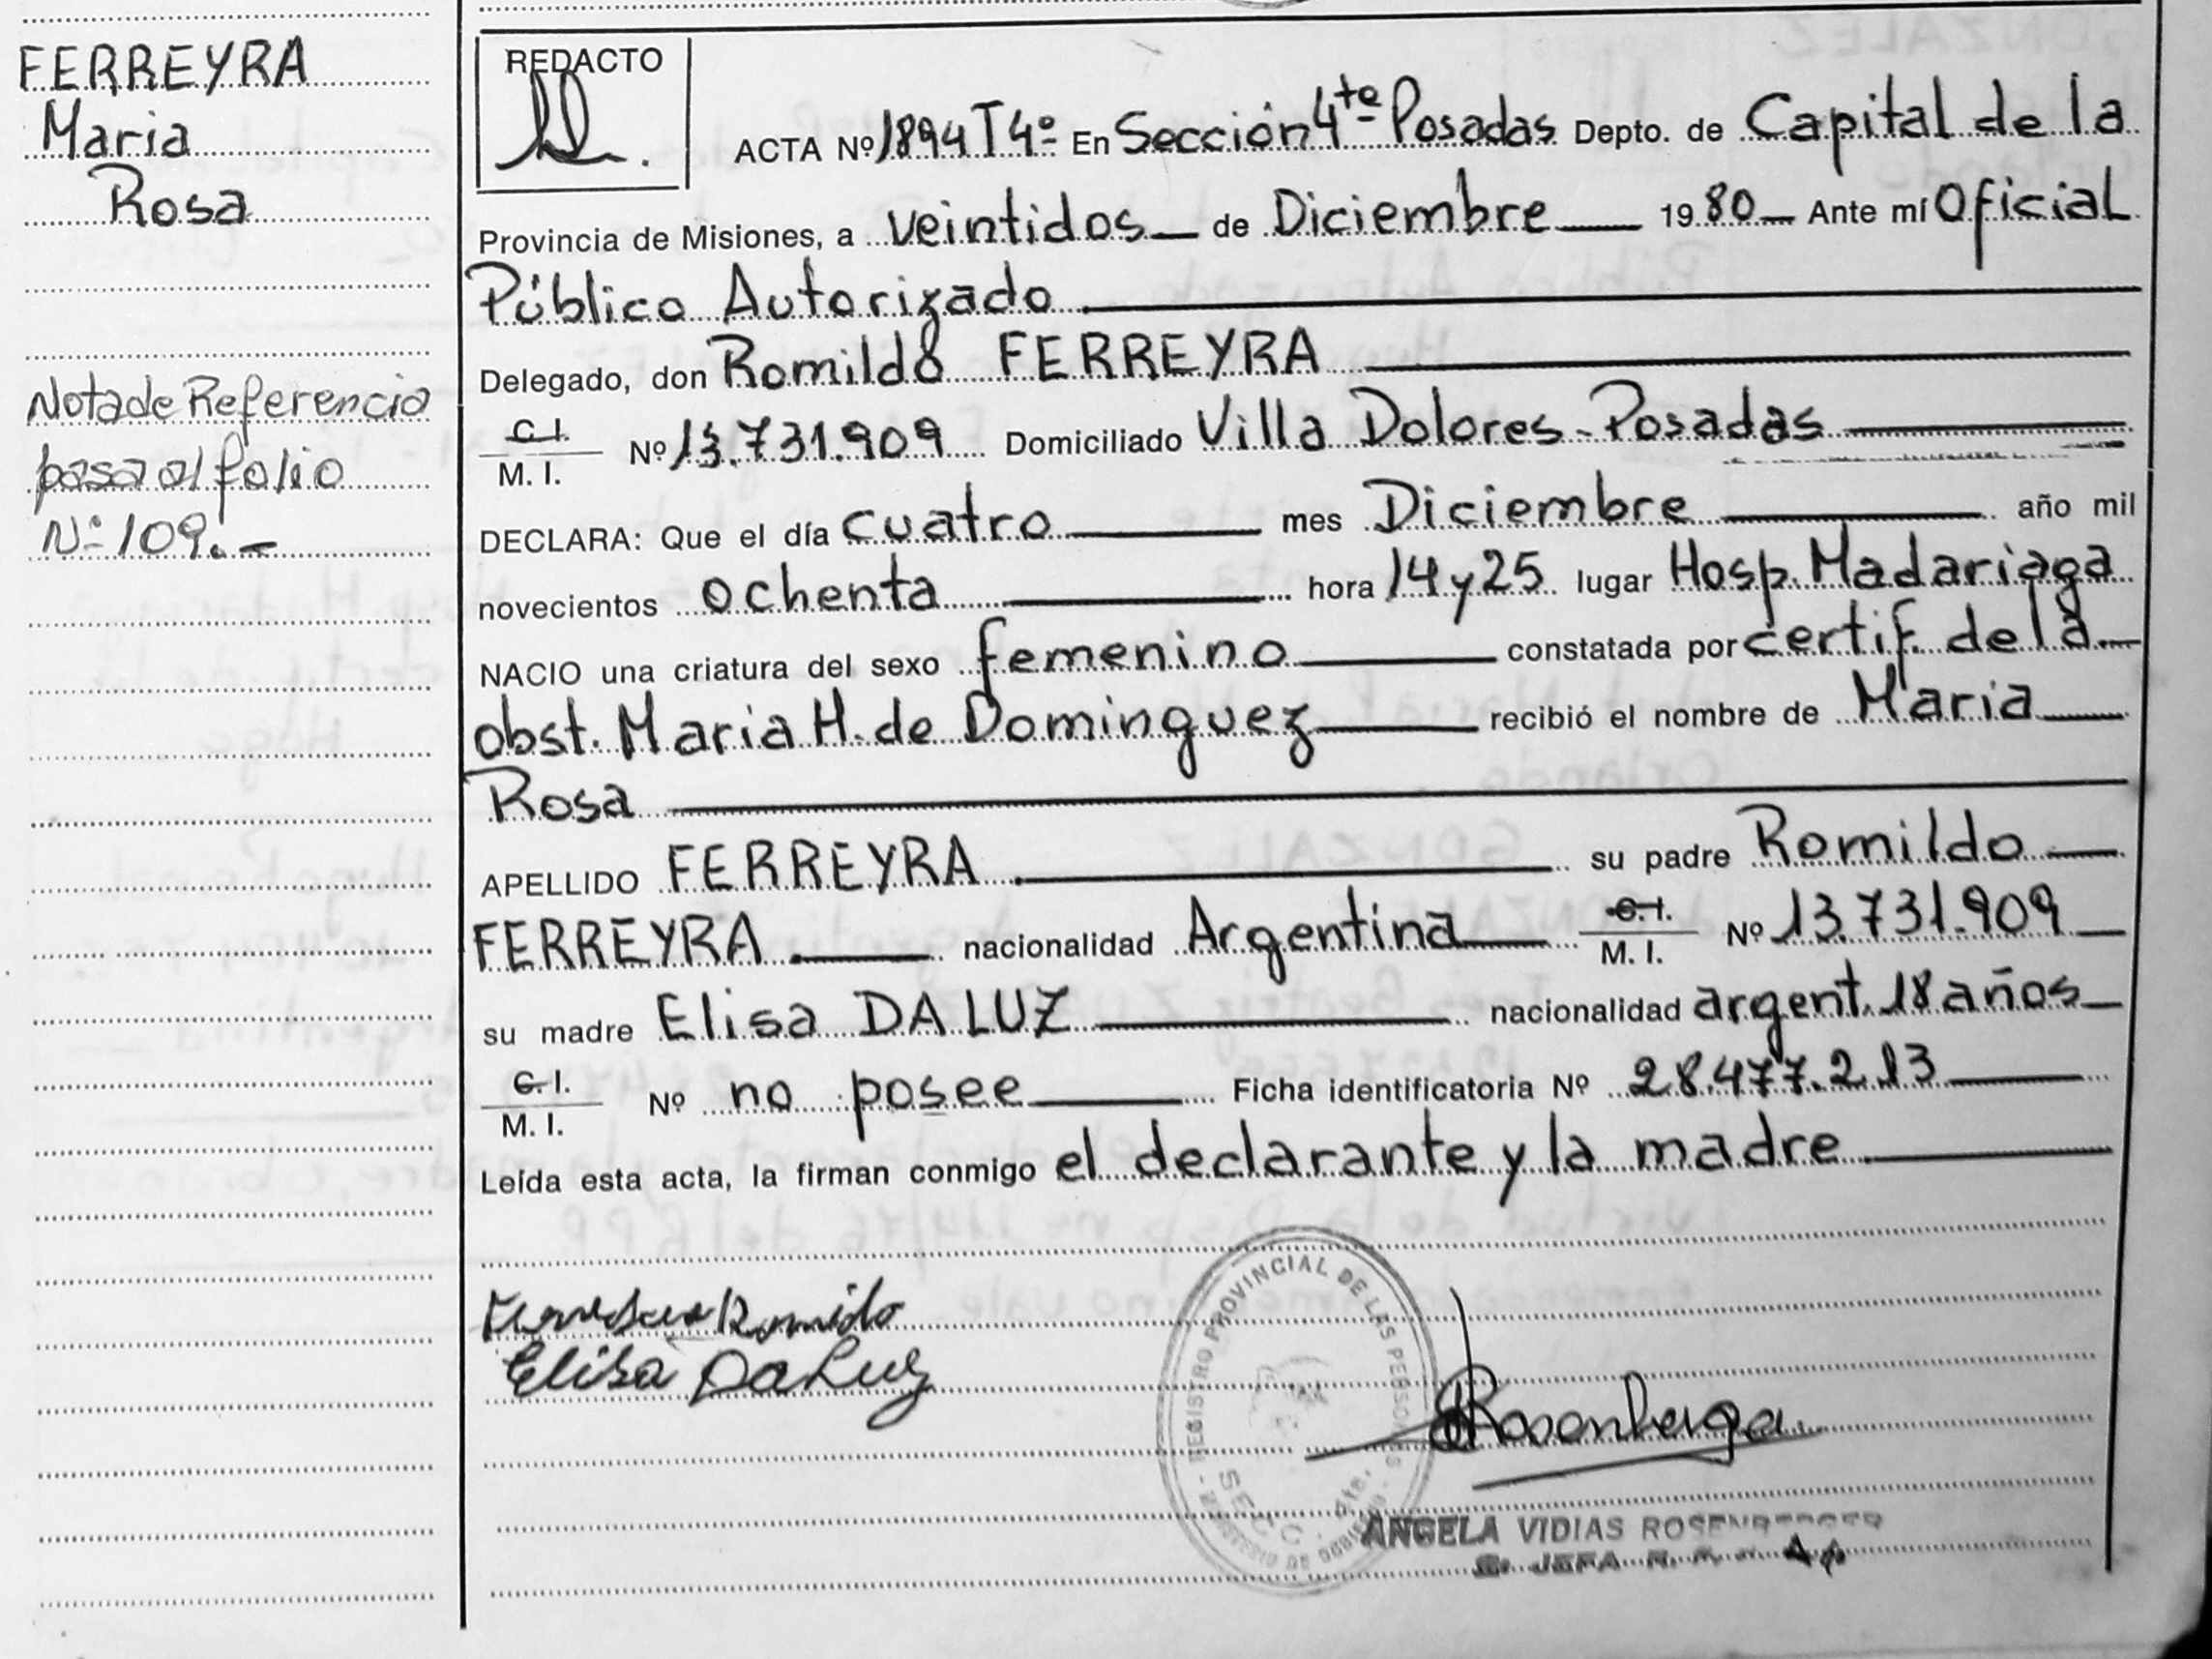 FERREYRA
Maria
Rosa
Nota de Referencia
pasa al folio
Nº 109.-
REDACTO
ACTA Nº 1894 T4º En Sección 4ta Posadas Depto. de Capital de la
Provincia de Misiones, a veintidos de Diciembre 1980 Ante mí Oficial
Público Autorizado
Delegado, don Romildo FERREYRA
C.I.
M. I. Nº 13.731.909 Domiciliado Villa Dolores - Posadas
DECLARA: Que el día cuatro mes Diciembre año mil
novecientos ochenta hora 14 y 25 lugar Hosp. Madariaga
NACIO una criatura del sexo femenino constatada por certif. de la
obst. Maria H. de Dominguez recibió el nombre de Maria
Rosa
APELLIDO FERREYRA su padre Romildo
FERREYRA nacionalidad Argentina C.I.
M. I. Nº 13.731.909
su madre Elisa DA LUZ nacionalidad argent. 18 años
C.I.
M. I. Nº no posee Ficha identificatoria Nº 28.477.213
Leída esta acta, la firman conmigo el declarante y la madre
Romildo
Elisa Da Luz
REGISTRO PROVINCIAL DE LAS PERSONAS
SECC. 4ta.
MINISTERIO DE GOBIERNO
Rosenberger
ANGELA VIDIAS ROSENBERGER
JEFA